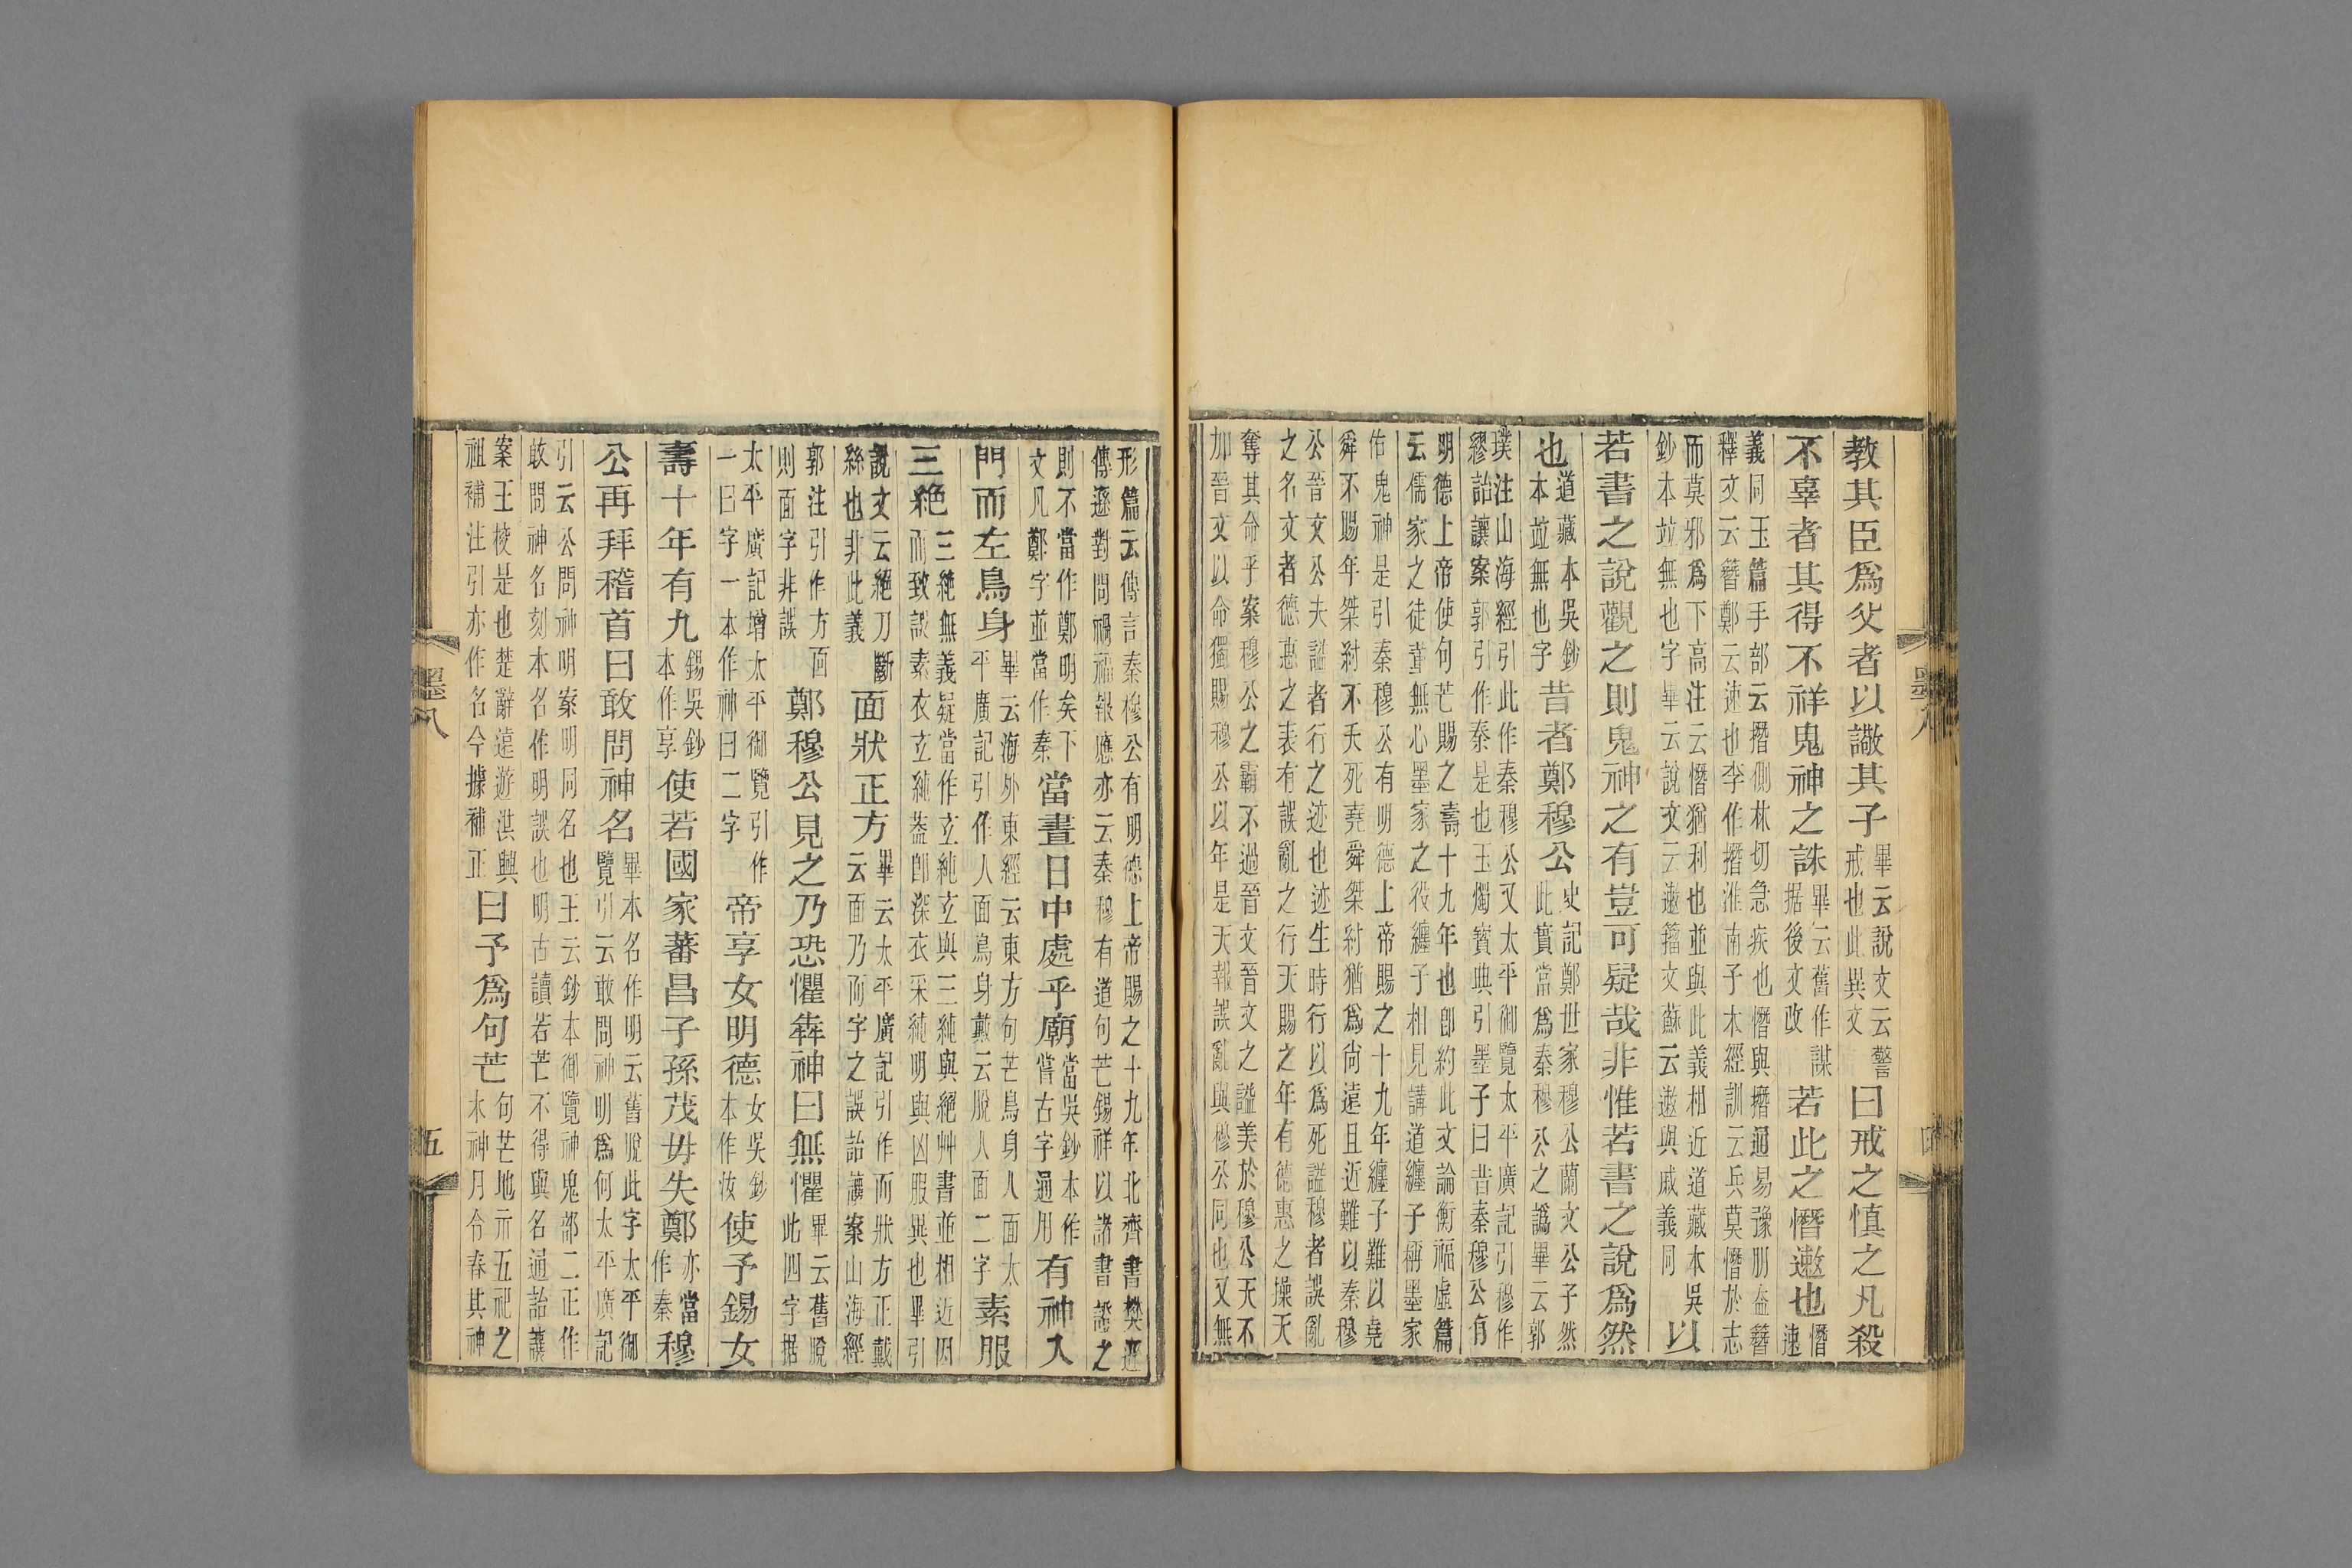 教其臣爲父者以譤其子畢云說文云警戒也此異文曰戒之慎之凡殺
不辜者其得不祥鬼神之誅畢云舊作謀据後文改若此之憯遫也憯速
義同玉篇手部云撍側林切急疾也憯與撍通易豫朋盍簪釋文云簪鄭云速也李作撍淮南子本經訓云兵莫憯於志
而莫邪爲下高注云憯猶利也並與此義相近道藏本吳鈔本竝無也字畢云說文云遬籀文蘇云遬與戚義同以
若書之說觀之則鬼神之有豈可疑哉非惟若書之說爲然
也道藏本吳鈔本竝無也字昔者鄭穆公史記鄭世家穆公蘭文公子然此實當爲秦穆公之譌畢云郭
璞注山海經引此作秦穆公又太平御覽太平廣記引穆作繆詒讓案郭引作秦是也玉燭寶典引墨子曰昔秦穆公有
明德上帝使句芒賜之壽十九年也卽約此文論衡福虛篇云儒家之徒董無心墨家之役纏子相見講道纏子稱墨家
佑鬼神是引秦穆公有明德上帝賜之十九年纏子難以堯舜不賜年桀紂不夭死堯舜桀紂猶爲尙遠且近難以秦穆
公晉文公夫謚者行之迹也迹生時行以爲死謚穆者誤亂之名文者德惠之表有誤亂之行天賜之年有德惠之操天
奪其命乎案穆公之霸不過晉文晉文之謚美於穆公天不加晉文以命獨賜穆公以年是天報誤亂與穆公同也又無
墨八
四
形篇云傳言秦穆公有明德上帝賜之十九年北齊書樊遜傳遜對問禍福報應亦云秦穆有道句芒錫祥以諸書證之
則不當作鄭明矣下文凡鄭字並當作秦當晝日中處乎廟當吳鈔本作嘗古字通用有神入
門而左鳥身畢云海外東經云東方句芒鳥身人面太平廣記引作人面鳥身戴云脫人面二字素服
三絶三絶無義疑當作玄純玄與三純與絕艸書並相近因而致誤素衣玄純葢卽深衣采純明與凶服異也畢引
說文云絕刀斷絲也非此義面狀正方畢云太平廣記引作而狀方正戴云面乃而字之誤詒讓案山海經
郭注引作方面則面字非誤鄭穆公見之乃恐懼犇神曰無懼畢云舊脫此四字据
太平廣記增太平御覽引作一曰字一本作神曰二字帝享女明德女吳鈔本作汝使予錫女
壽十年有九錫吳鈔本作享使若國家蕃昌子孫茂毋失鄭亦當作秦穆
公再拜稽首曰敢問神名畢本名作明云舊脫此字太平御覽引云敢問神明爲何太平廣記
引云公問神明案明同名也王云鈔本御覽神鬼部二正作敢問神名刻本名作明誤也明古讀若芒不得與名通詒讓
案王校是也楚辭遠遊洪興祖補注引亦作名今據補正曰予爲句芒句芒地示五祀之木神月令春其神
墨八
五